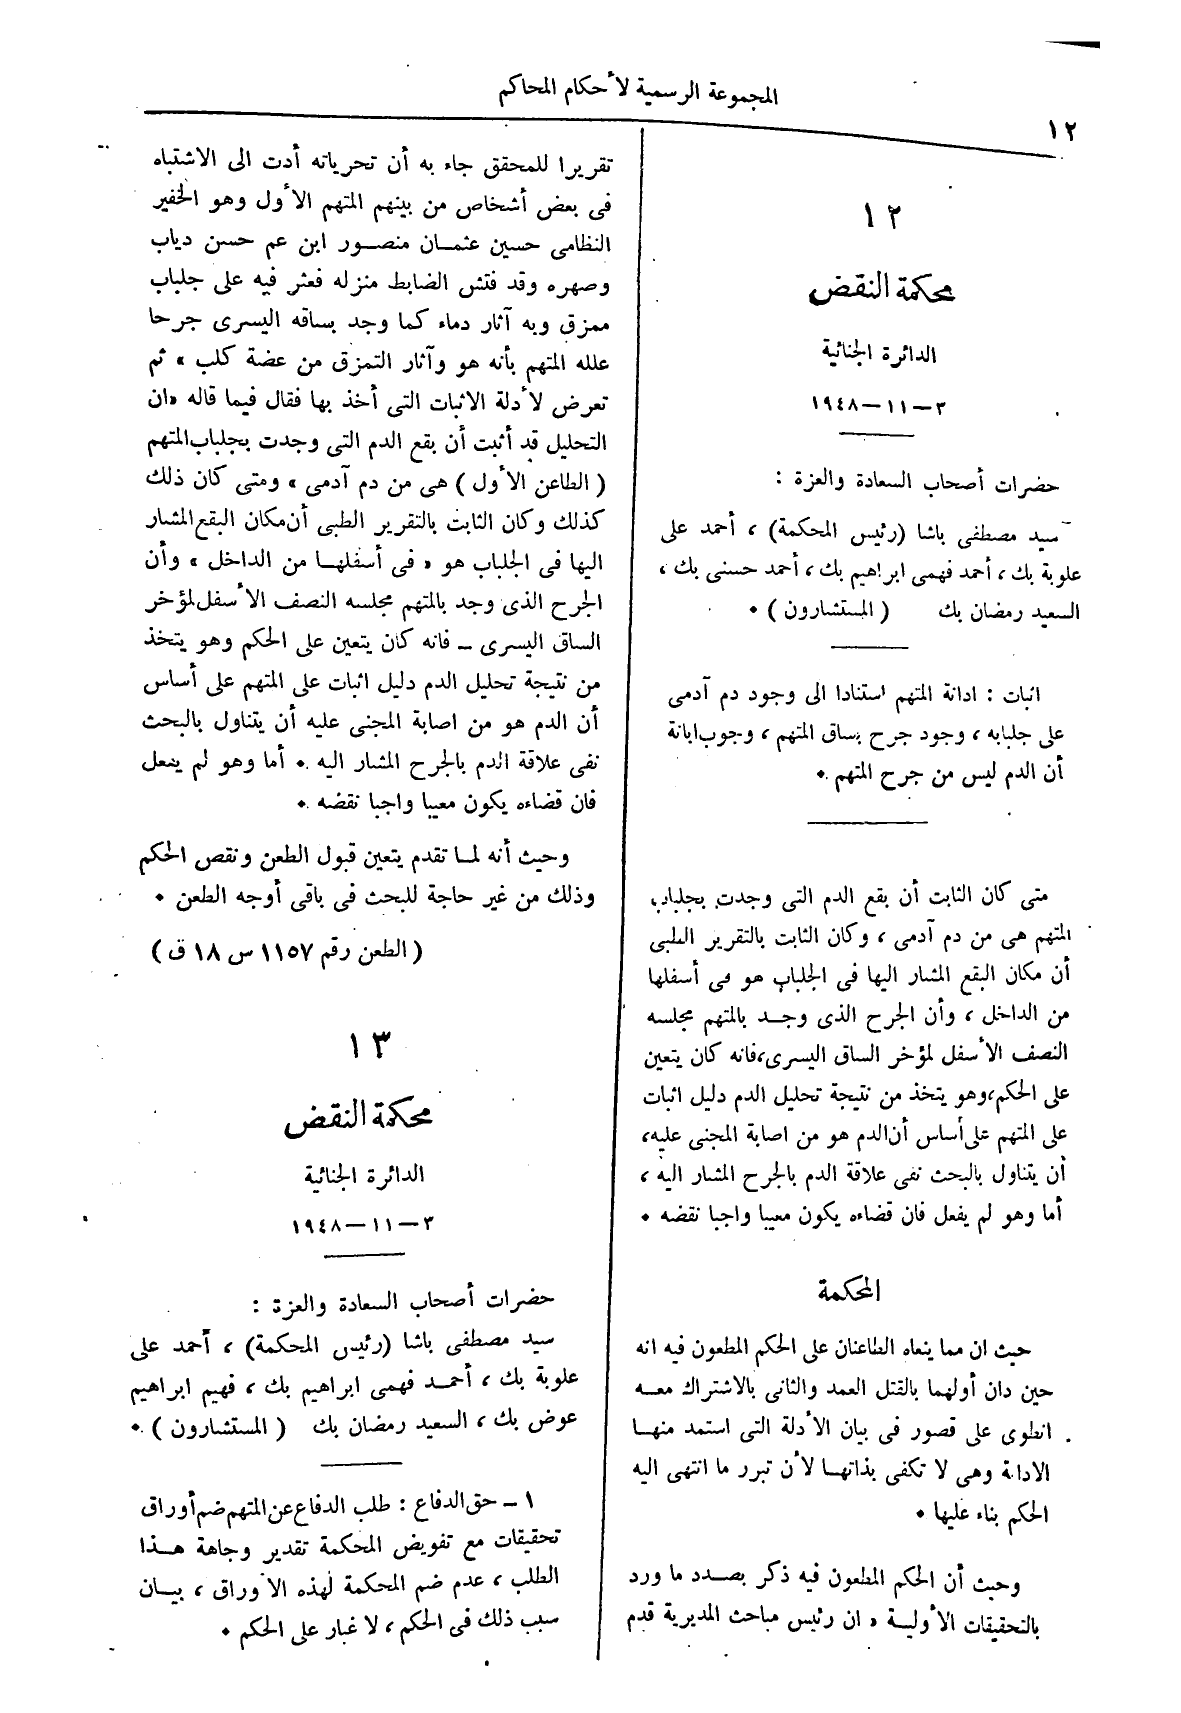 المجموعة الرسمية لأحكام المحاكم
١٢
١٢
محكمة النقض
الدائرة الجنائية
٣ — ١١ — ١٩٤٨
حضرات أصحاب السعادة والعزة :
سيد مصطفى باشا (رئيس المحكمة) ، أحمد على
علوبة بك ، أحمد فهمى ابراهيم بك ، أحمد حسنى بك ،
السعيد رمضان بك ( المستشارون ) .
اثبات : ادانة المتهم استنادا الى وجود دم آدمى
على جلبابه ، وجود جرح بساق المتهم ، وجوب ابانة
أن الدم ليس من جرح المتهم .
متى كان الثابت أن بقع الدم التى وجدت بجلباب
المتهم هى من دم آدمى ، وكان الثابت بالتقرير الطبى
أن مكان البقع المشار اليها فى الجلباب هو فى أسفلها
من الداخل ، وأن الجرح الذى وجد بالمتهم مجلسه
النصف الأسفل لمؤخر الساق اليسرى ، فانه كان يتعين
على الحكم ، وهو يتخذ من نتيجة تحليل الدم دليل اثبات
على المتهم على أساس أن الدم هو من اصابة المجنى عليه ،
أن يتناول بالبحث نفى علاقة الدم بالجرح المشار اليه ،
أما وهو لم يفعل فان قضاءه يكون معيبا واجبا نقضه .
المحكمة
حيث ان مما ينعاه الطاعنان على الحكم المطعون فيه انه
حين دان أولهما بالقتل العمد والثانى بالاشتراك معه
انطوى على قصور فى بيان الأدلة التى استمد منها
الادانة وهى لا تكفى بذاتها لأن تبرر ما انتهى اليه
الحكم بناء عليها .
وحيث أن الحكم المطعون فيه ذكر بصدد ما ورد
بالتحقيقات الأولية « ان رئيس مباحث المديرية قدم
تقريرا للمحقق جاء به أن تحرياته أدت الى الاشتباه
فى بعض أشخاص من بينهم المتهم الأول وهو الخفير
النظامى حسين عثمان منصور ابن عم حسن دياب
وصهره وقد فتش الضابط منزله فعثر فيه على جلباب
ممزق وبه آثار دماء كما وجد بساقه اليسرى جرحا
علله المتهم بأنه هو وآثار التمزق من عضة كلب » ثم
تعرض لأدلة الاثبات التى أخذ بها فقال فيما قاله «ان
التحليل قد أثبت أن بقع الدم التى وجدت بجلباب المتهم
( الطاعن الأول ) هى من دم آدمى » ومتى كان ذلك
كذلك وكان الثابت بالتقرير الطبى أن مكان البقع المشار
اليها فى الجلباب هو « فى أسفلها من الداخل » وأن
الجرح الذى وجد بالمتهم مجلسه النصف الأسفل لمؤخر
الساق اليسرى ـ فانه كان يتعين على الحكم وهو يتخذ
من نتيجة تحليل الدم دليل اثبات على المتهم على أساس
أن الدم هو من اصابة المجنى عليه أن يتناول بالبحث
نفى علاقة الدم بالجرح المشار اليه . أما وهو لم يفعل
فان قضاءه يكون معيبا واجبا نقضه .
وحيث أنه لما تقدم يتعين قبول الطعن ونقص الحكم
وذلك من غير حاجة للبحث فى باقى أوجه الطعن .
( الطعن رقم ١١٥٧ س ١٨ ق )
١٣
محكمة النقض
الدائرة الجنائية
٣ — ١١ — ١٩٤٨
حضرات أصحاب السعادة والعزة :
سيد مصطفى باشا (رئيس المحكمة) ، أحمد على
علوبة بك ، أحمد فهمى ابراهيم بك ، فهيم ابراهيم
عوض بك ، السعيد رمضان بك ( المستشارون ) .
١ ـ حق الدفاع : طلب الدفاع عن المتهم ضم أوراق
تحقيقات مع تفويض المحكمة تقدير وجاهة هذا
الطلب ، عدم ضم المحكمة لهذه الأوراق ، بيان
سبب ذلك فى الحكم ، لا غبار على الحكم .